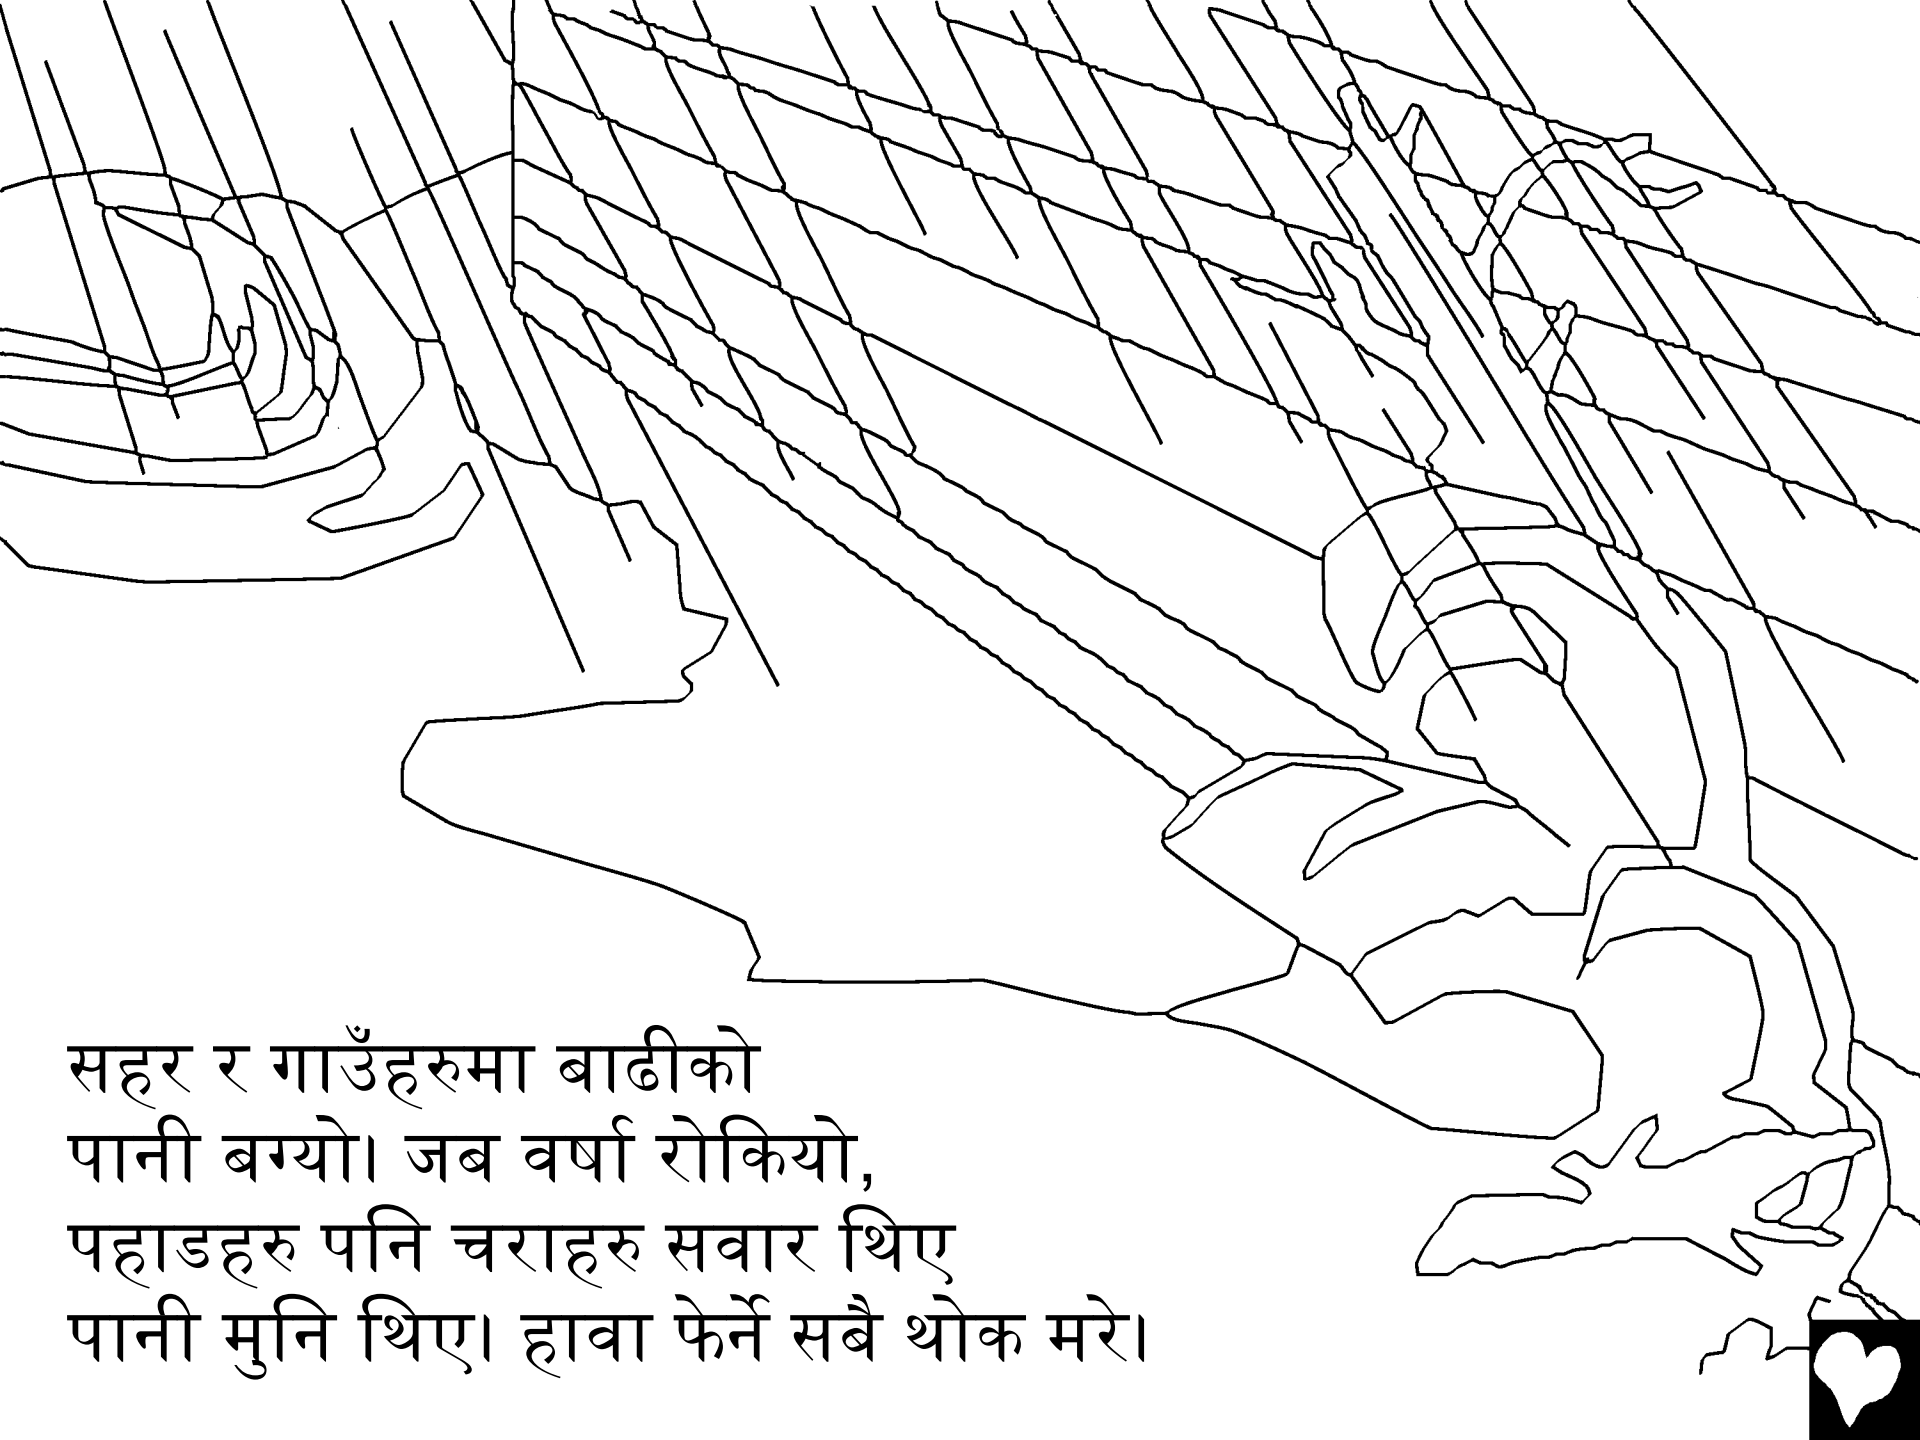 सहर र गाउँहरुमा बाढीको
पानी बग्यो। जब वर्षा रोकियो,
पहाडहरु पनि चराहरु सवार थिए
पानी मुनि थिए। हावा फेर्ने सबै थोक मरे।